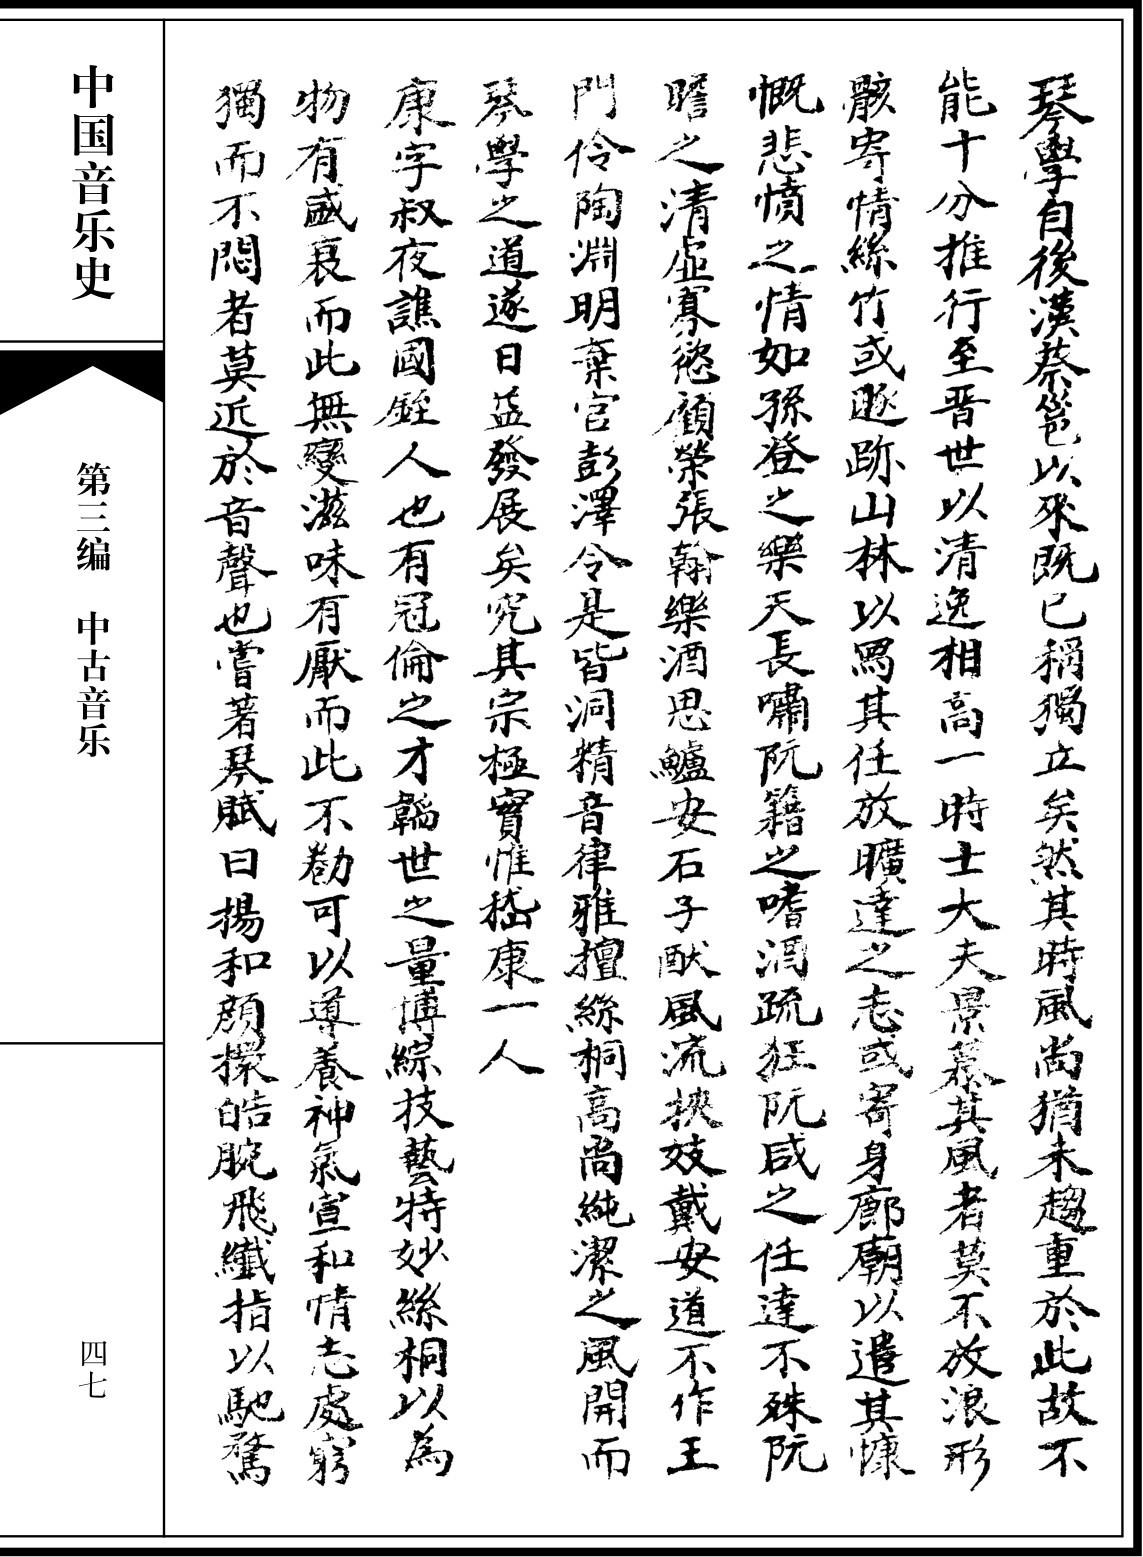 琴學自後漢蔡邕以來既已稱獨立矣然其時風尚猶未趨重於此故不
能十分推行至晋世以清逸相高一時士大夫景慕其風者莫不放浪形
骸寄情絲竹或遯跡山林以寫其任放曠達之志或寄身廊廟以遣其慷
慨悲憤之情如孫登之樂天長嘯阮籍之嗜酒疏狂阮咸之任達不殊阮
瞻之清虛寡慾顧榮張翰樂酒思鱸安石子猷風流挾妓戴安道不作王
門伶陶淵明棄官彭澤令是皆洞精音律雅擅絲桐高尚純潔之風開而
琴學之道遂日益發展矣究其宗極實惟嵇康一人
康字叔夜譙國銍人也有冠倫之才韜世之量博綜技藝特妙絲桐以為
物有盛衰而此無變滋味有厭而此不勌可以導養神氣宣和情志處窮
獨而不悶者莫近於音聲也嘗著琴賦曰揚和顔攘皓腕飛纖指以馳騖
中国音乐史
第三编 中古音乐
四七